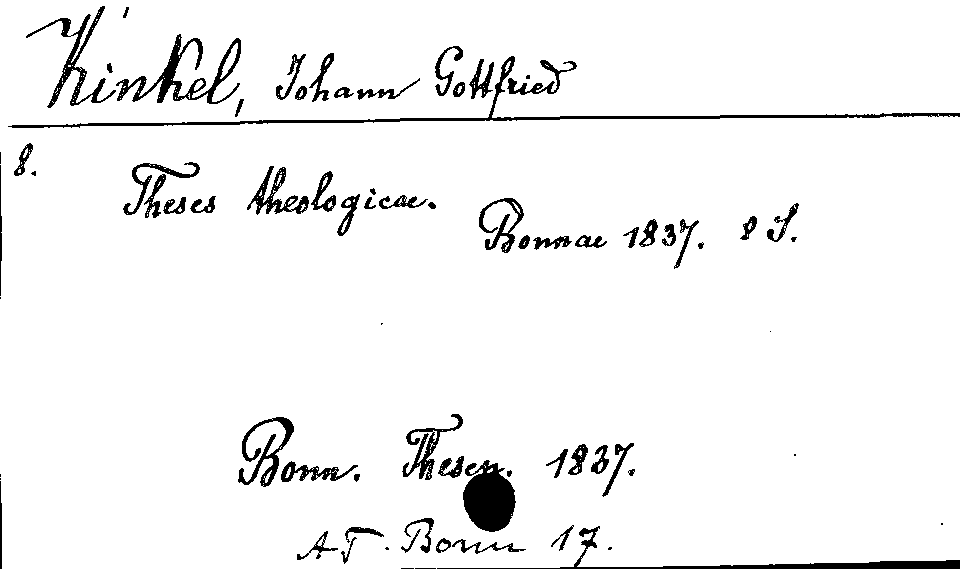 Kinkel, Johann Gottfried
8.
Theses theologicae.
Bonnae 1837. 8 S.
Bonn. Thesen. 1837.
AT. Bonn 17.